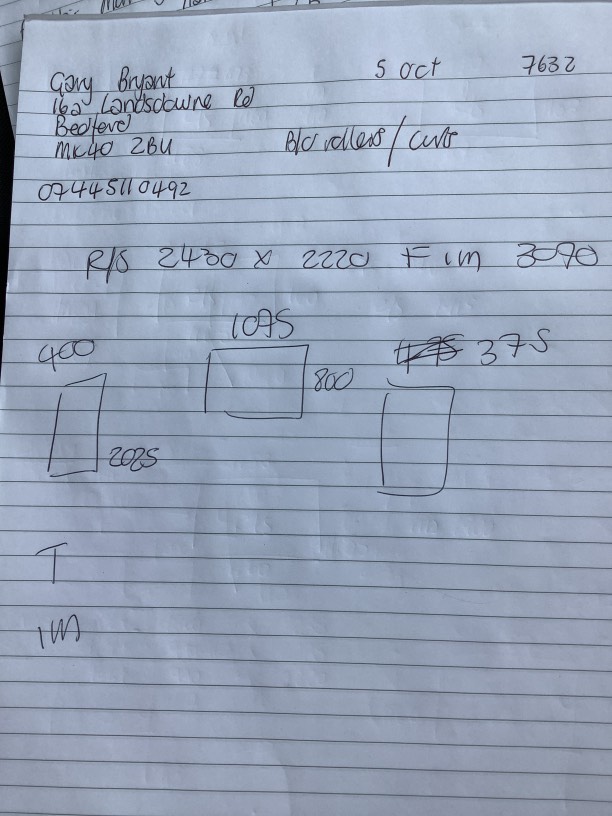 Gary Bryant 5 Oct 7632
162 Landsdowne Rd
Bedford
MK40 2BU B/O rollers / curts
07445110492
R/S 2430 x 2220 F 1m 3090
1095
400 375
800
2025
T
1M